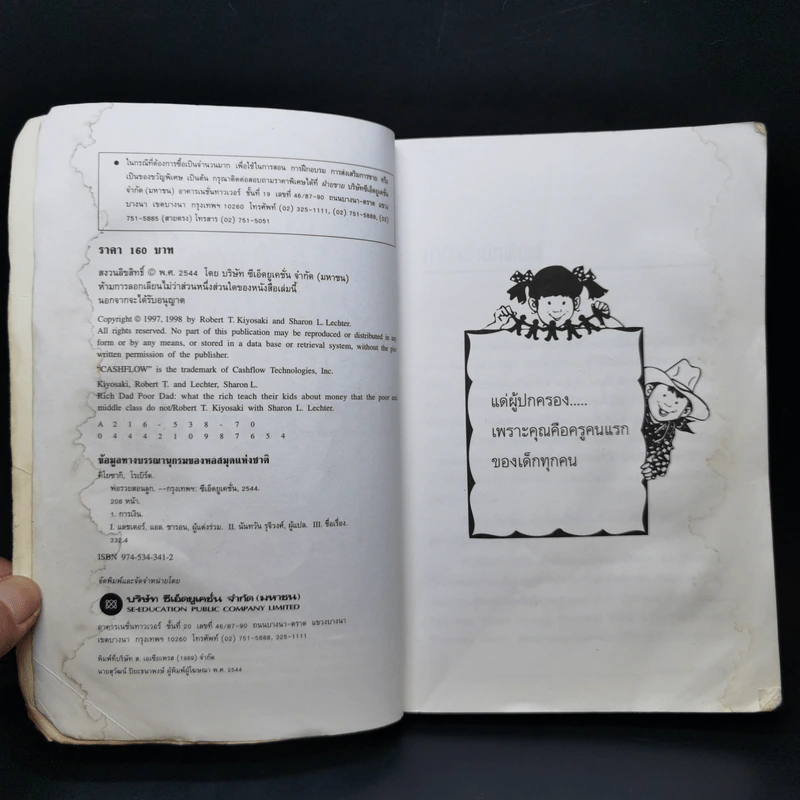 • ในกรณีที่ต้องการซื้อเป็นจำนวนมาก เพื่อใช้ในการสอน การฝึกอบรม การส่งเสริมการขาย หรือ
เป็นของขวัญพิเศษ เป็นต้น กรุณาติดต่อสอบถามราคาพิเศษได้ที่ ฝ่ายขาย บริษัทซีเอ็ดยูเคชั่น
จำกัด (มหาชน) อาคารเนชั่นทาวเวอร์ ชั้นที่ 19 เลขที่ 46/87-90 ถนนบางนา-ตราด แขวง
บางนา เขตบางนา กรุงเทพฯ 10260 โทรศัพท์ (02) 325-1111, (02) 751-5888, (02)
751-5885 (สายตรง) โทรสาร (02) 751-5051
ราคา 160 บาท
สงวนลิขสิทธิ์ © พ.ศ. 2544 โดย บริษัท ซีเอ็ดยูเคชั่น จำกัด (มหาชน)
ห้ามการลอกเลียนไม่ว่าส่วนหนึ่งส่วนใดของหนังสือเล่มนี้
นอกจากจะได้รับอนุญาต
Copyright © 1997, 1998 by Robert T. Kiyosaki and Sharon L. Lechter.
All rights reserved. No part of this publication may be reproduced or distributed in any
form or by any means, or stored in a data base or retrieval system, without the
written permission of the publisher.
"CASHFLOW" is the trademark of Cashflow Technologies, Inc.
Kiyosaki, Robert T. and Lechter, Sharon L.
Rich Dad Poor Dad: what the rich teach their kids about money that the poor and
middle class do not/Robert T. Kiyosaki with Sharon L. Lechter.
A 216 - 538 - 70
0 4 4 4 2 1 0 9 8 7 6 5 4
ข้อมูลทางบรรณานุกรมของหอสมุดแห่งชาติ
คิโยซากิ, โรเบิร์ต.
พ่อรวยสอนลูก. --กรุงเทพฯ: ซีเอ็ดยูเคชั่น, 2544.
208 หน้า.
1. การเงิน.
I. แลชเตอร์, แอล. ชารอน, ผู้แต่งร่วม. II. นันทวัน รุจิวงศ์, ผู้แปล. III. ชื่อเรื่อง.
332.4
ISBN 974-534-341-2
จัดพิมพ์และจัดจำหน่ายโดย
บริษัท ซีเอ็ดยูเคชั่น จำกัด (มหาชน)
SE-EDUCATION PUBLIC COMPANY LIMITED
อาคารเนชั่นทาวเวอร์ ชั้นที่ 20 เลขที่ 46/87-90 ถนนบางนา-ตราด แขวงบางนา
เขตบางนา กรุงเทพฯ 10260 โทรศัพท์ (02) 751-5888, 325-1111
พิมพ์ที่บริษัท ส. เอเซียเพรส (1989) จำกัด
นายสุวัฒน์ ปิยะชนาพงษ์ ผู้พิมพ์ผู้โฆษณา พ.ศ. 2544
แด่ผู้ปกครอง.....
เพราะคุณคือครูคนแรก
ของเด็กทุกคน